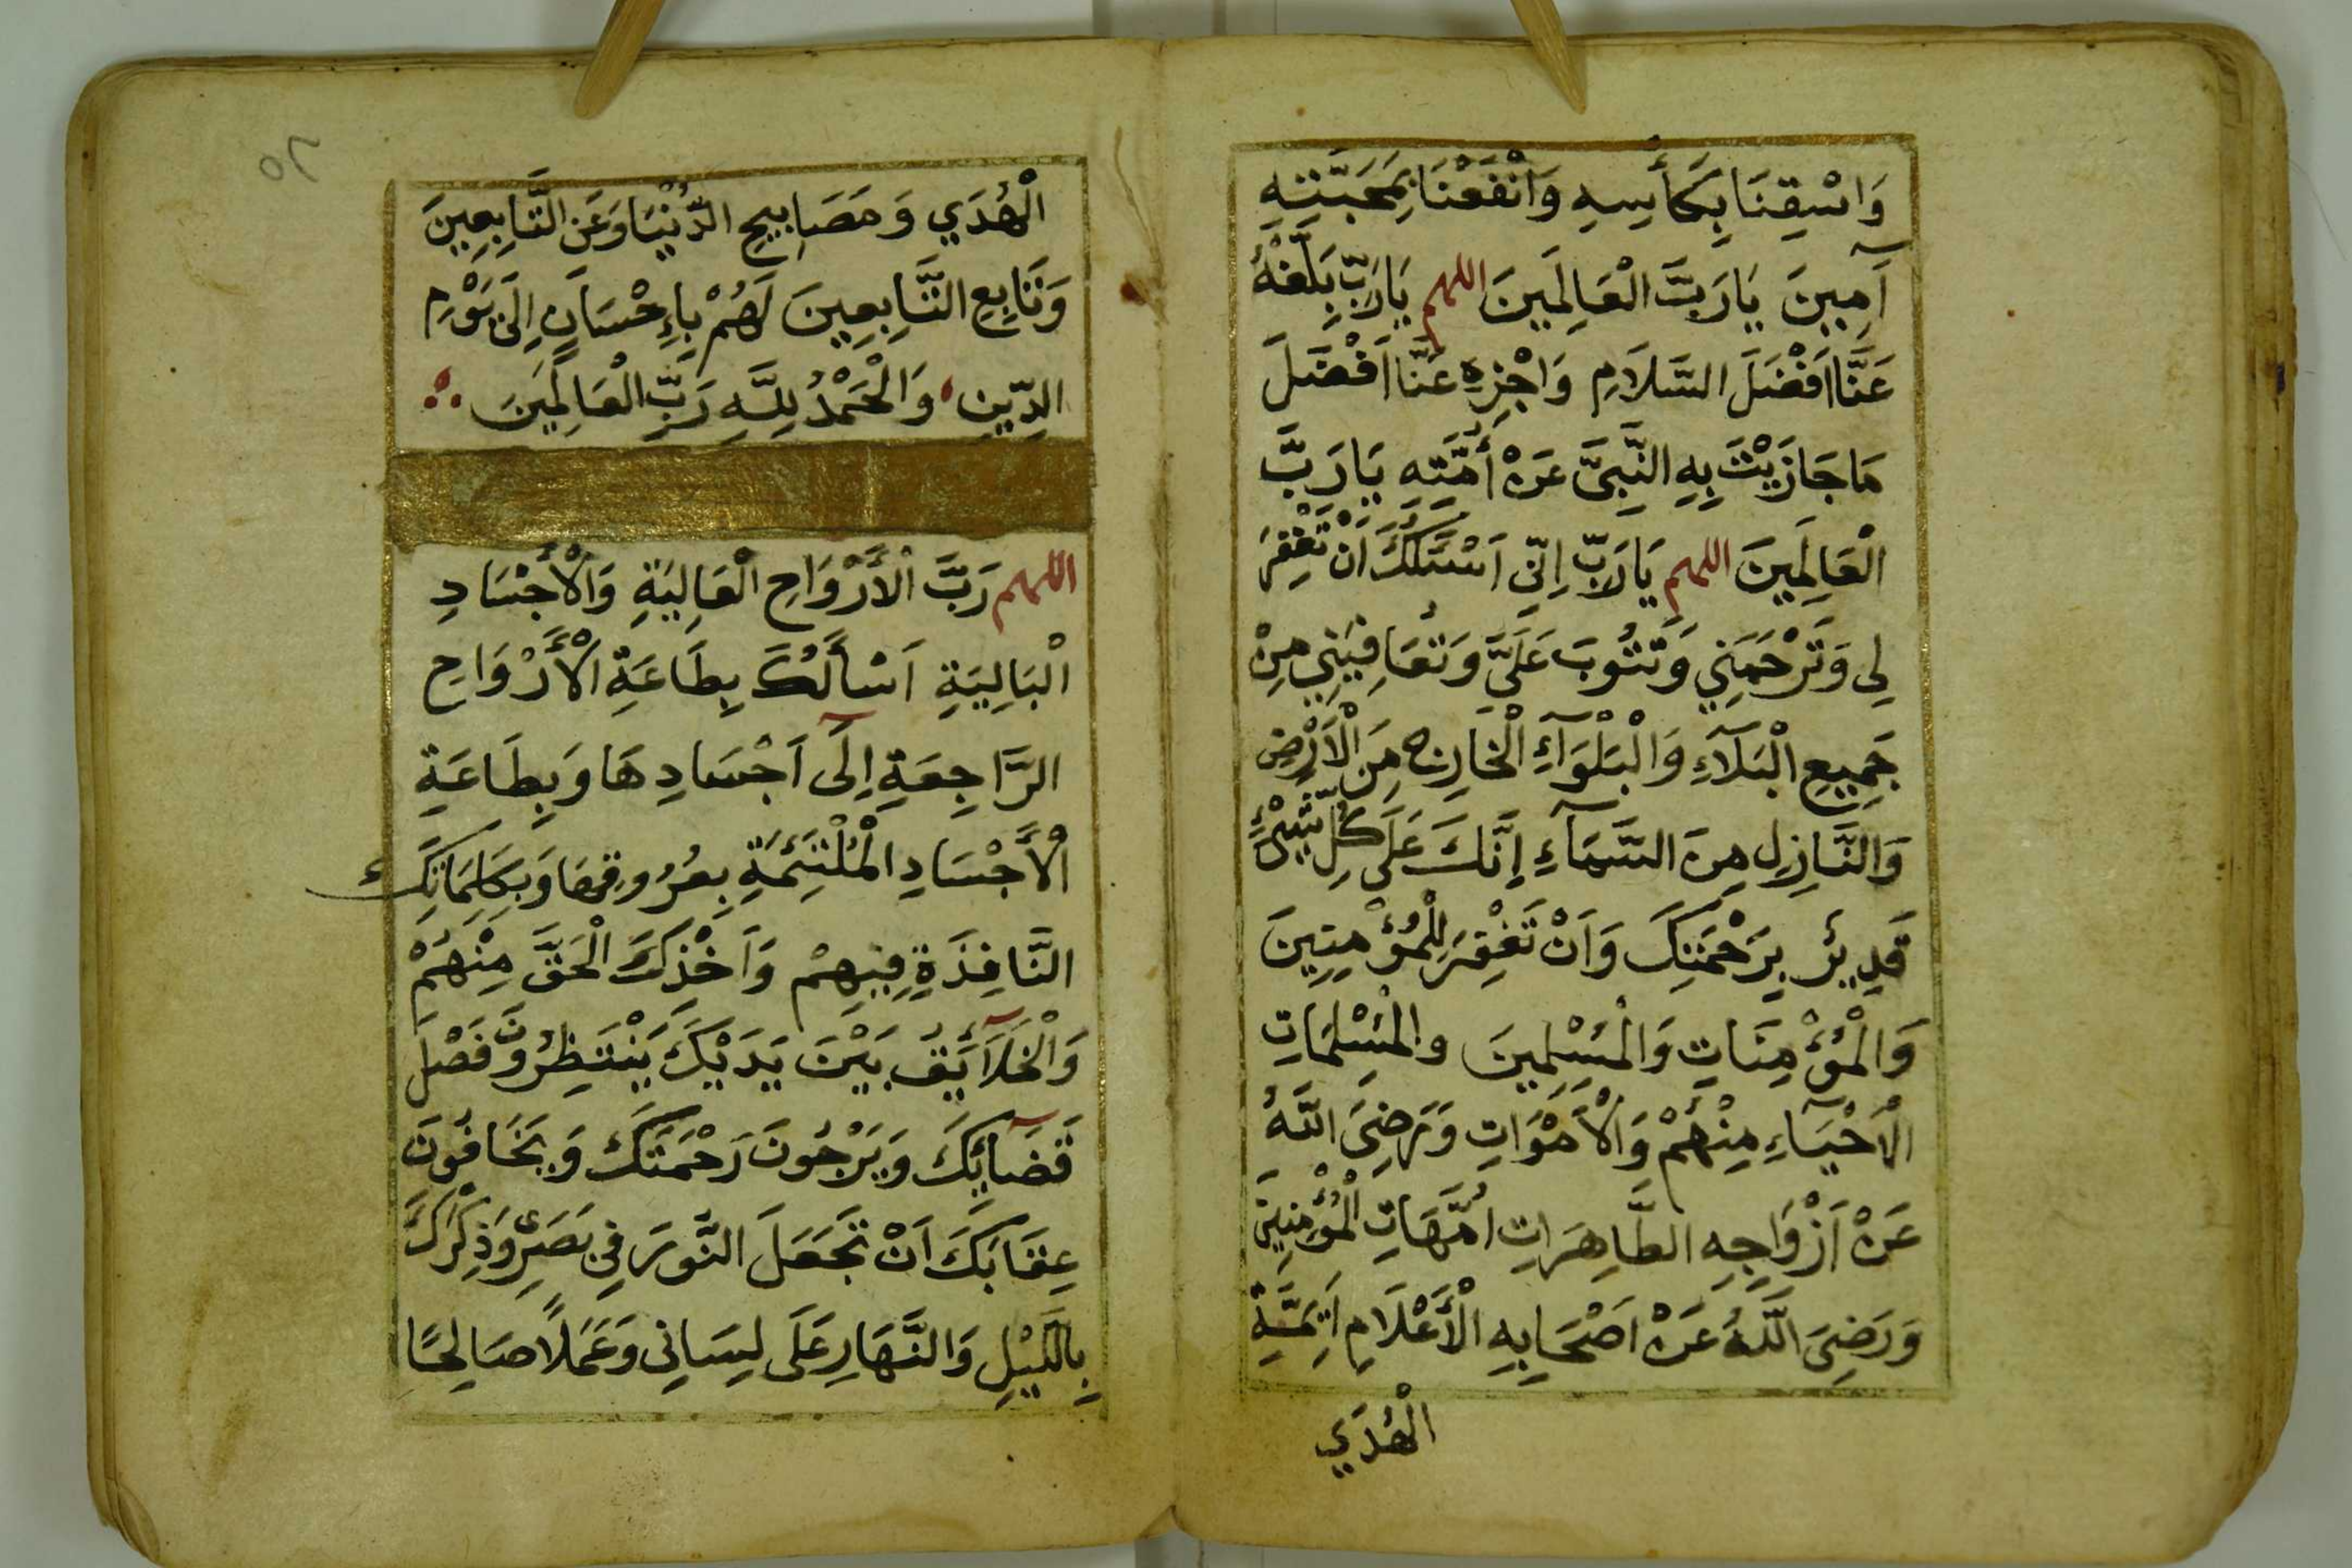 وَاسْقِنَا بِكَأْسِهِ وَانْفَعْنَا بِمَحَبَّتِهِ
آمِينَ يَا رَبَّ الْعَالَمِينَ اللهم يَا رَبِّ بَلِّغْهُ
عَنَّا اَفْضَلَ السَّلَامِ وَاجْزِهِ عَنَّا اَفْضَلَ
مَا جَازَيْتَ بِهِ النَّبِىَّ عَنْ أُمَّتِهِ يَا رَبَّ
الْعَالَمِينَ اللهم يَا رَبِّ اِنِّى اَسْئَلُكَ اَنْ تَغْفِرَ
لِى وَتَرْحَمَنِي وَتَتُوبَ عَلَيَّ وَتُعَافِيَنِي مِنْ
جَمِيعِ الْبَلَآءِ وَالْبَلْوَآءِ الْخَارِجِ مِنَ الْاَرْضِ
وَالنَّازِلِ مِنَ السَّمَآءِ إِنَّكَ عَلَى كُلِّ شَيْءٍ
قَدِيرٌ بِرَحْمَتِكَ وَاَنْ تَغْفِرَ لِلْمُؤْمِنِينَ
وَالْمُؤْمِنَاتِ وَالْمُسْلِمِينَ والْمُسْلِمَاتِ
الْاَحْيَآءِ مِنْهُمْ وَالْاَمْوَاتِ وَرَضِىَ اللَّهُ
عَنْ اَزْوَاجِهِ الطَّاهِرَاتِ اُمَّهَاتِ الْمُؤْمِنِينَ
وَرَضِىَ اللَّهُ عَنْ اَصْحَابِهِ الْأَعْلَامِ اَئِمَّةِ
الْهُدَي
٥٦
الْهُدَي وَمَصَابِيحِ الدُّنْيَا وَعَنِ التَّابِعِينَ
وَتَابِعِ التَّابِعِينَ لَهُمْ بِإِحْسَانٍ اِلَى يَوْمِ
الدِّينِ وَالْحَمْدُ لِلَّهِ رَبِّ الْعَالَمِينَ
اللهم رَبَّ الْأَرْوَاحِ الْعَالِيَةِ وَالْأَجْسَادِ
الْبَالِيَةِ اَسْأَلُكَ بِطَاعَةِ الْأَرْوَاحِ
الرَّاجِعَةِ اِلَى اَجْسَادِهَا وَبِطَاعَةِ
الْأَجْسَادِ الْمُلْتَئِمَةِ بِعُرُوقِهَا وَبِكَلِمَاتِكَ
النَّافِذَةِ فِيهِمْ وَاَخْذِكَ الْحَقَّ مِنْهُمْ
وَالْخَلَآئِقُ بَيْنَ يَدَيْكَ يَنْتَظِرُونَ فَصْلَ
قَضَآئِكَ وَيَرْجُونَ رَحْمَتَكَ وَيَخَافُونَ
عِقَابَكَ اَنْ تَجْعَلَ النُّورَ فِى بَصَرِى وَذِكْرَكَ
بِاللَّيْلِ وَالنَّهَارِ عَلَى لِسَانِى وَعَمَلًا صَالِحًا